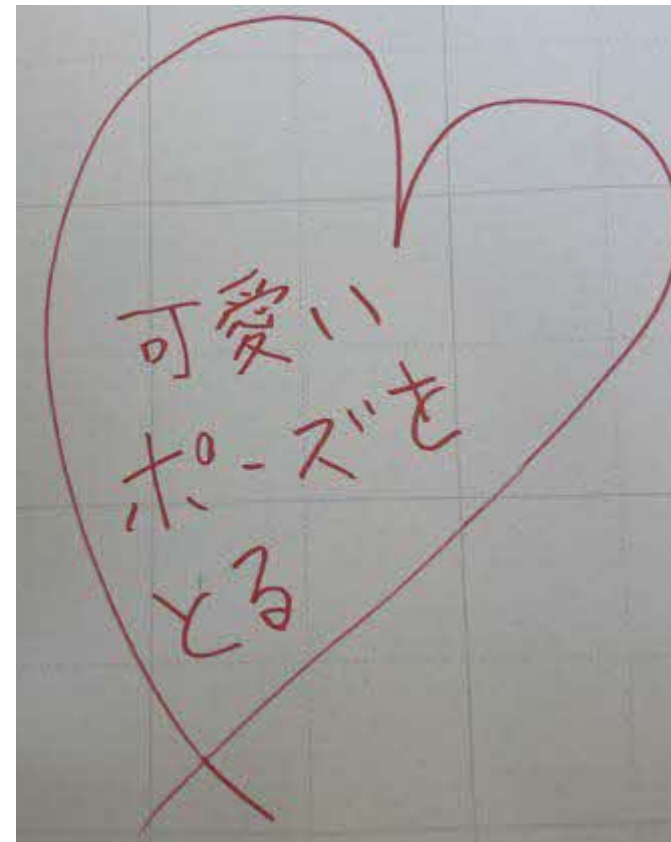 可愛い
ポーズを
とる